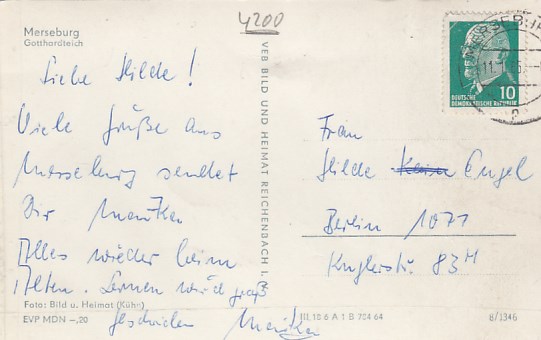 4200
Merseburg
Gotthardteich
MERSEBURG
11.
10
DEUTSCHE
DEMOKRATISCHE REPUBLIK
Liebe Hilde!
Viele Grüße aus
Merseburg sendet
Dir Monika
Alles wieder beim
Alten. Lernen wird groß
geschrieben Monika
VEB BILD UND HEIMAT REICHENBACH I.
Frau
Hilde Engel
Berlin 1071
Kuglerstr. 83
Foto: Bild u. Heimat (Kühn)
EVP MDN –,20
III 10 6 A 1 B 704 64
8/1346